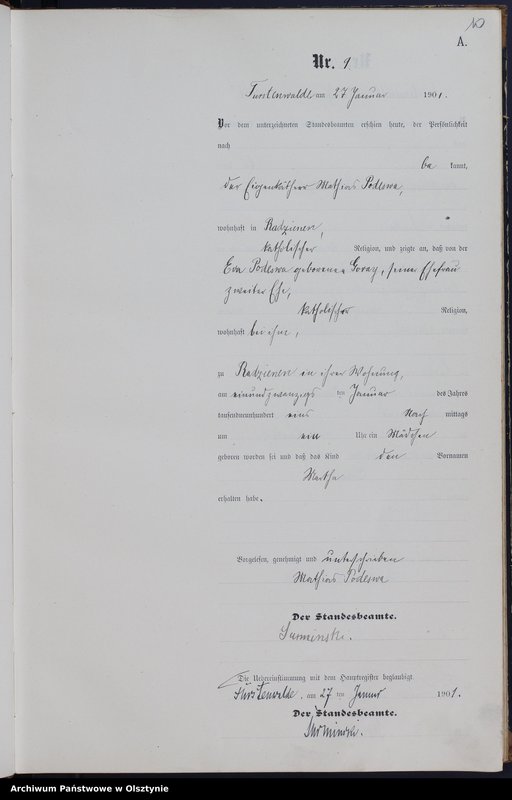 10
A.
Nr. 9
Fürstenwalde am 27 Januar 1901.
Vor dem unterzeichneten Standesbeamten erschien heute, der Persönlichkeit
nach
be kannt,
der Eigenkäthner Mathias Podeswa,
wohnhaft in Radzienen,
katholischer Religion, und zeigte an, daß von der
Eva Podeswa geborenen Goray, seiner Ehefrau
zweiter Ehe,
katholischer Religion,
wohnhaft bei ihm,
zu Radzienen in ihrer Wohnung,
am einundzwanzigs ten Januar des Jahres
tausendneunhundert eins Nach mittags
um ein Uhr ein Mädchen
geboren worden sei und daß das Kind den Vornamen
Martha
erhalten habe.
Vorgelesen, genehmigt und unterschrieben
Mathias Podeswa
Der Standesbeamte.
Surminski.
Die Uebereinstimmung mit dem Hauptregister beglaubigt
Fürstenwalde, am 27 ten Januar 1901.
Der Standesbeamte.
Surminski.
Archiwum Państwowe w Olsztynie